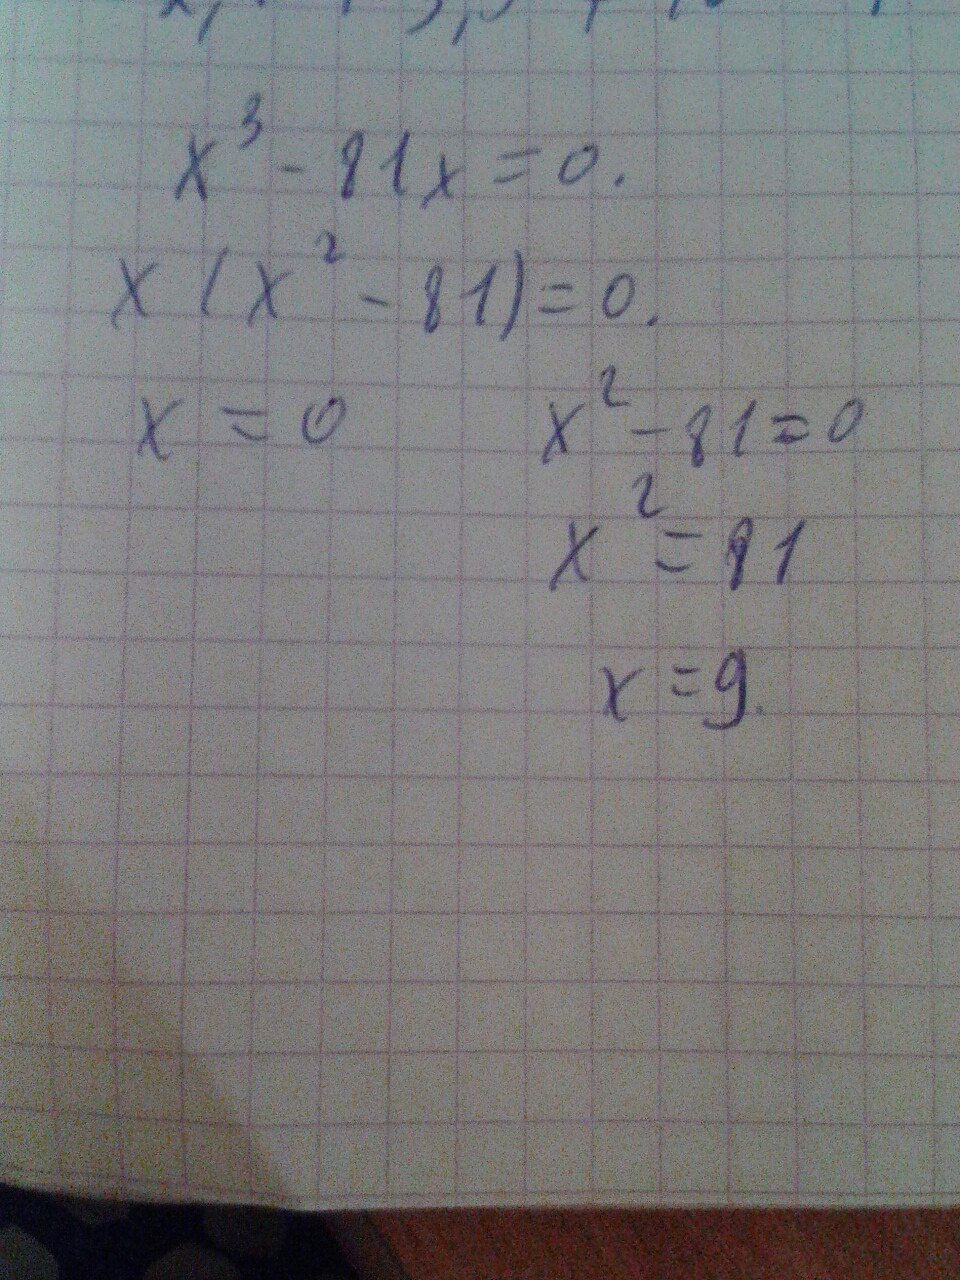 x³ - 81x = 0.
x (x² - 81) = 0.
x = 0 x² - 81 = 0
x² = 81
x = 9.